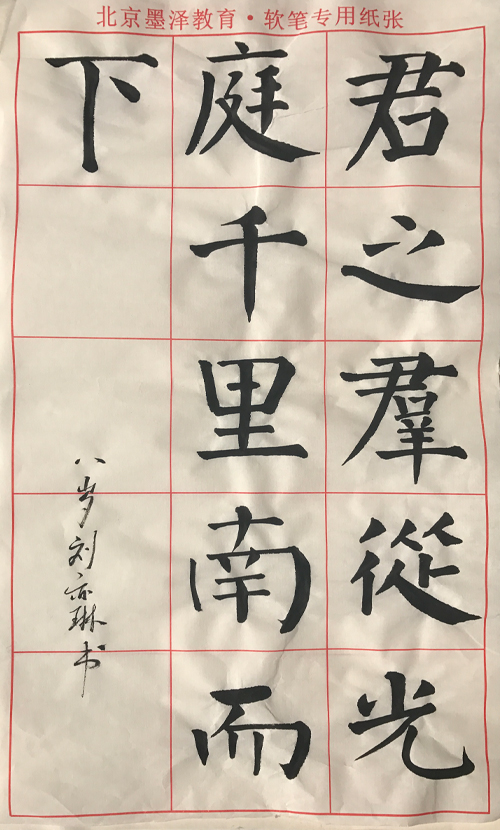 北京墨泽教育·软笔专用纸张
君之羣從光
庭千里南而
下
八岁刘亦琳书